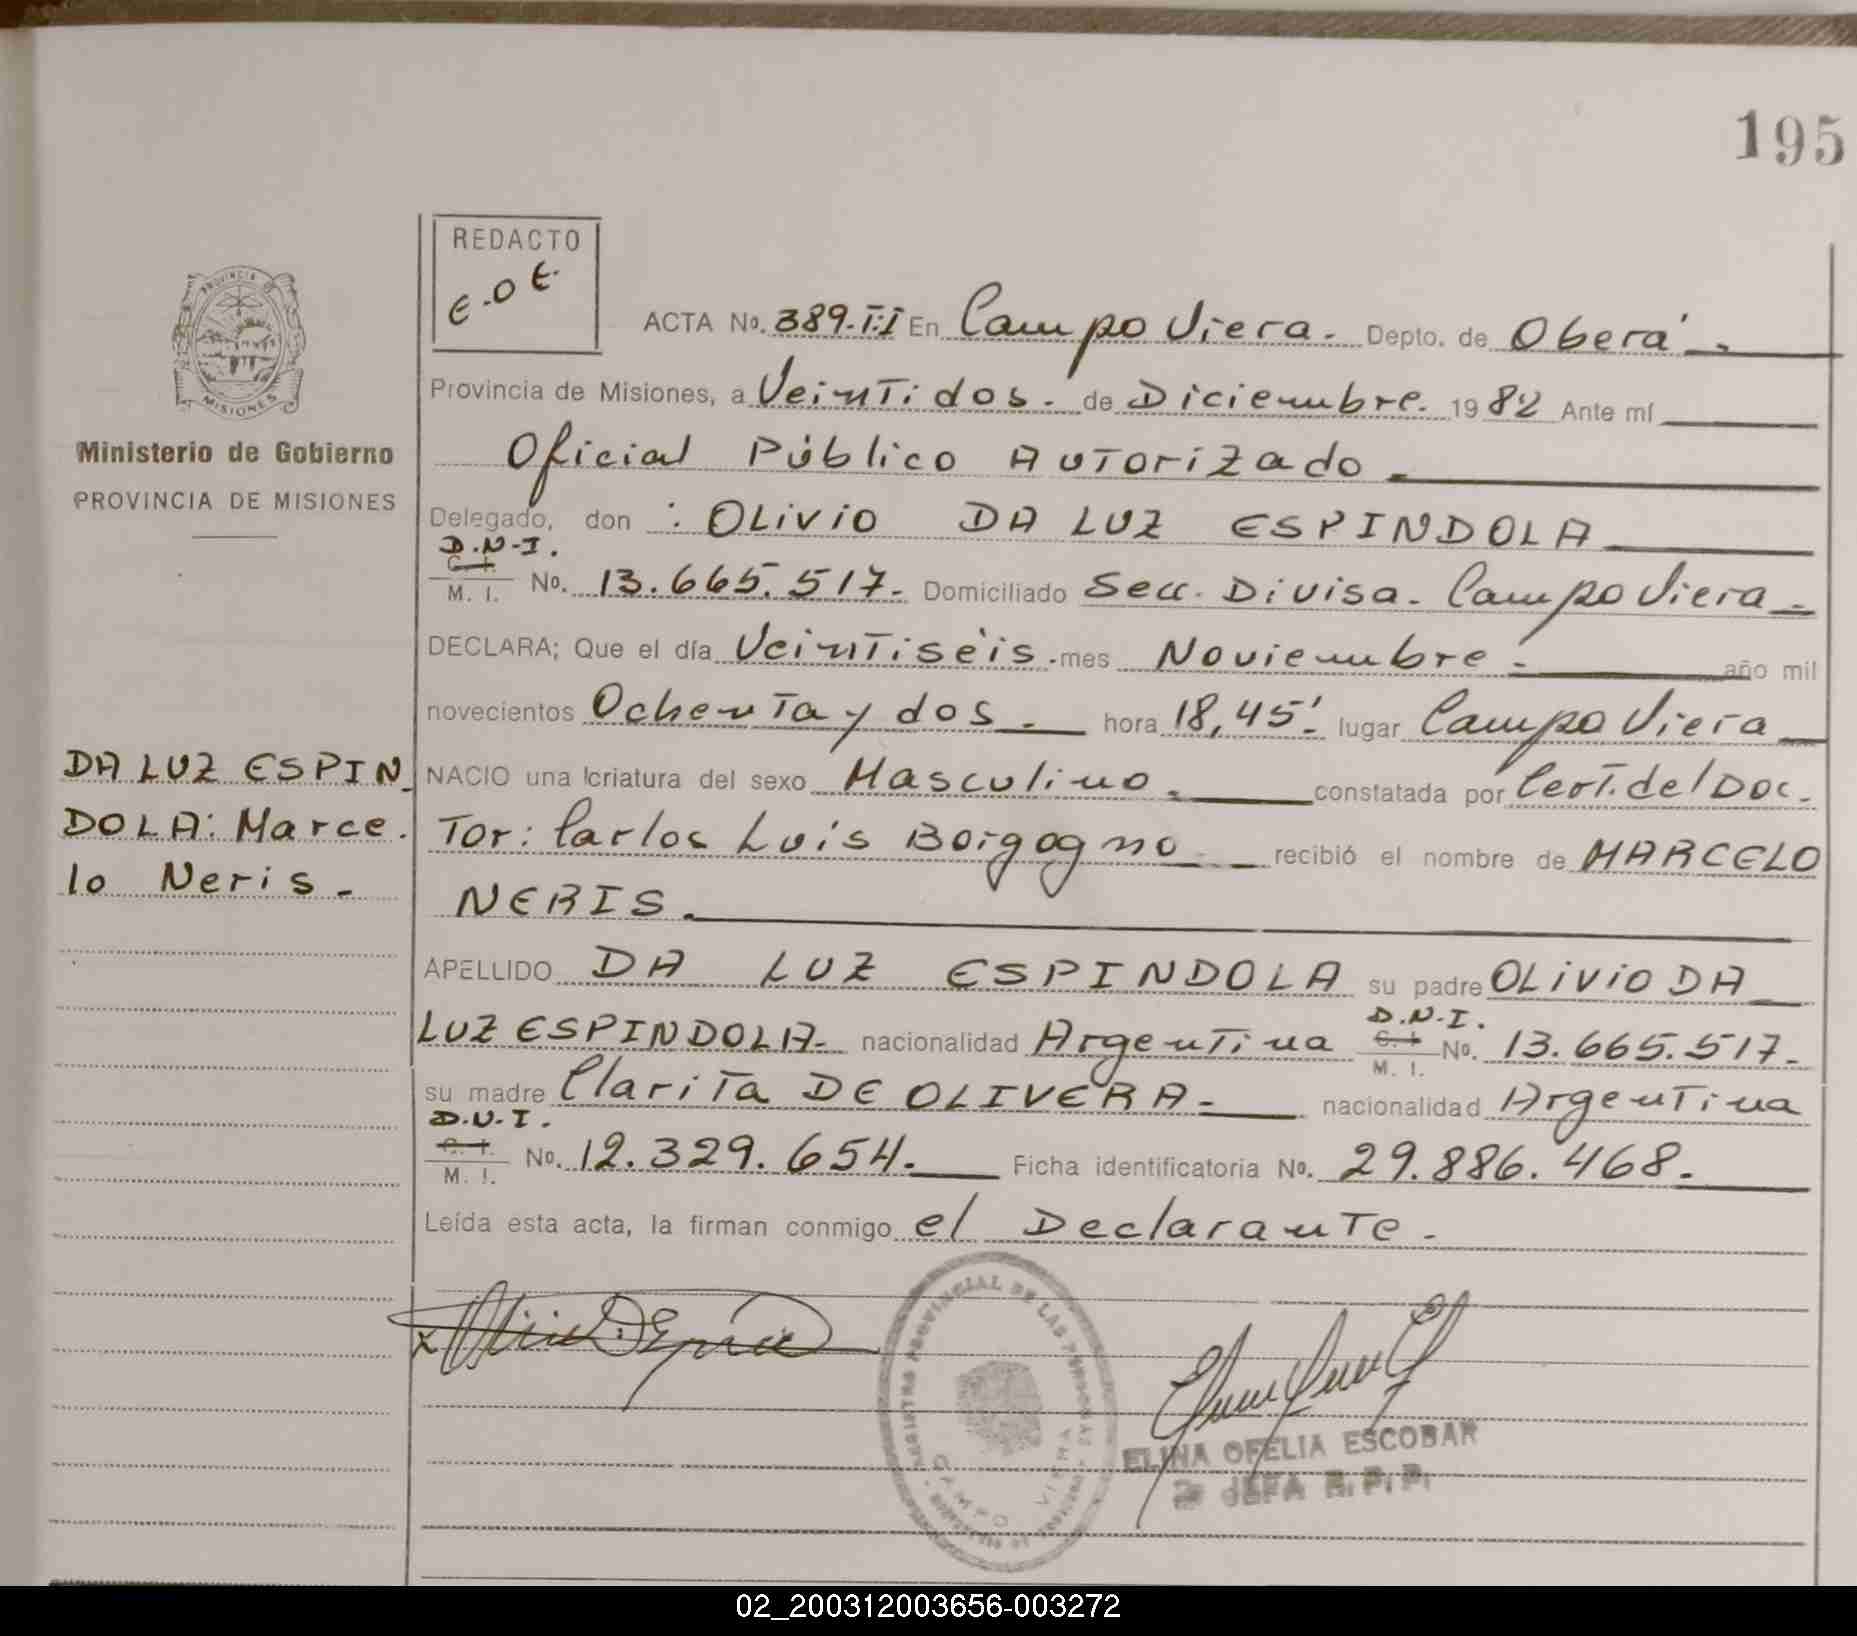 195
REDACTO
E.O.E.
PROVINCIA DE
MISIONES
Ministerio de Gobierno
PROVINCIA DE MISIONES
ACTA No. 389.T:I En Campo Viera. Depto. de Oberá.
Provincia de Misiones, a Veintidos. de Diciembre. 1982 Ante mí
Oficial Público Autorizado.
Delegado, don : OLIVIO DA LUZ ESPINDOLA
D.N.I.
C. I.
M. I. No. 13.665.517. Domiciliado Secc. Divisa. Campo Viera.
DECLARA; Que el día Veintiséis. mes Noviembre. año mil
novecientos Ochenta y dos. hora 18,45' lugar Campo Viera
NACIO una criatura del sexo Masculino. constatada por Cert. del Doc.
tor: Carlos Luis Borgogno recibió el nombre de MARCELO
NERIS.
DA LUZ ESPIN
DOLA: Marce.
lo Neris.
APELLIDO DA LUZ ESPINDOLA su padre OLIVIO DA
LUZ ESPINDOLA. nacionalidad Argentina D.N.I. C. I. M. I. No. 13.665.517.
su madre Clarita DE OLIVERA. nacionalidad Argentina
D.N.I.
C. I.
M. I. No. 12.329.654. Ficha identificatoria No. 29.886.468.
Leída esta acta, la firman conmigo el Declarante.
REGISTRO PROVINCIAL DE LAS PERSONAS
CAMPO VIERA
ELINA OFELIA ESCOBAR
JEFA R.P.P.
02_200312003656-003272